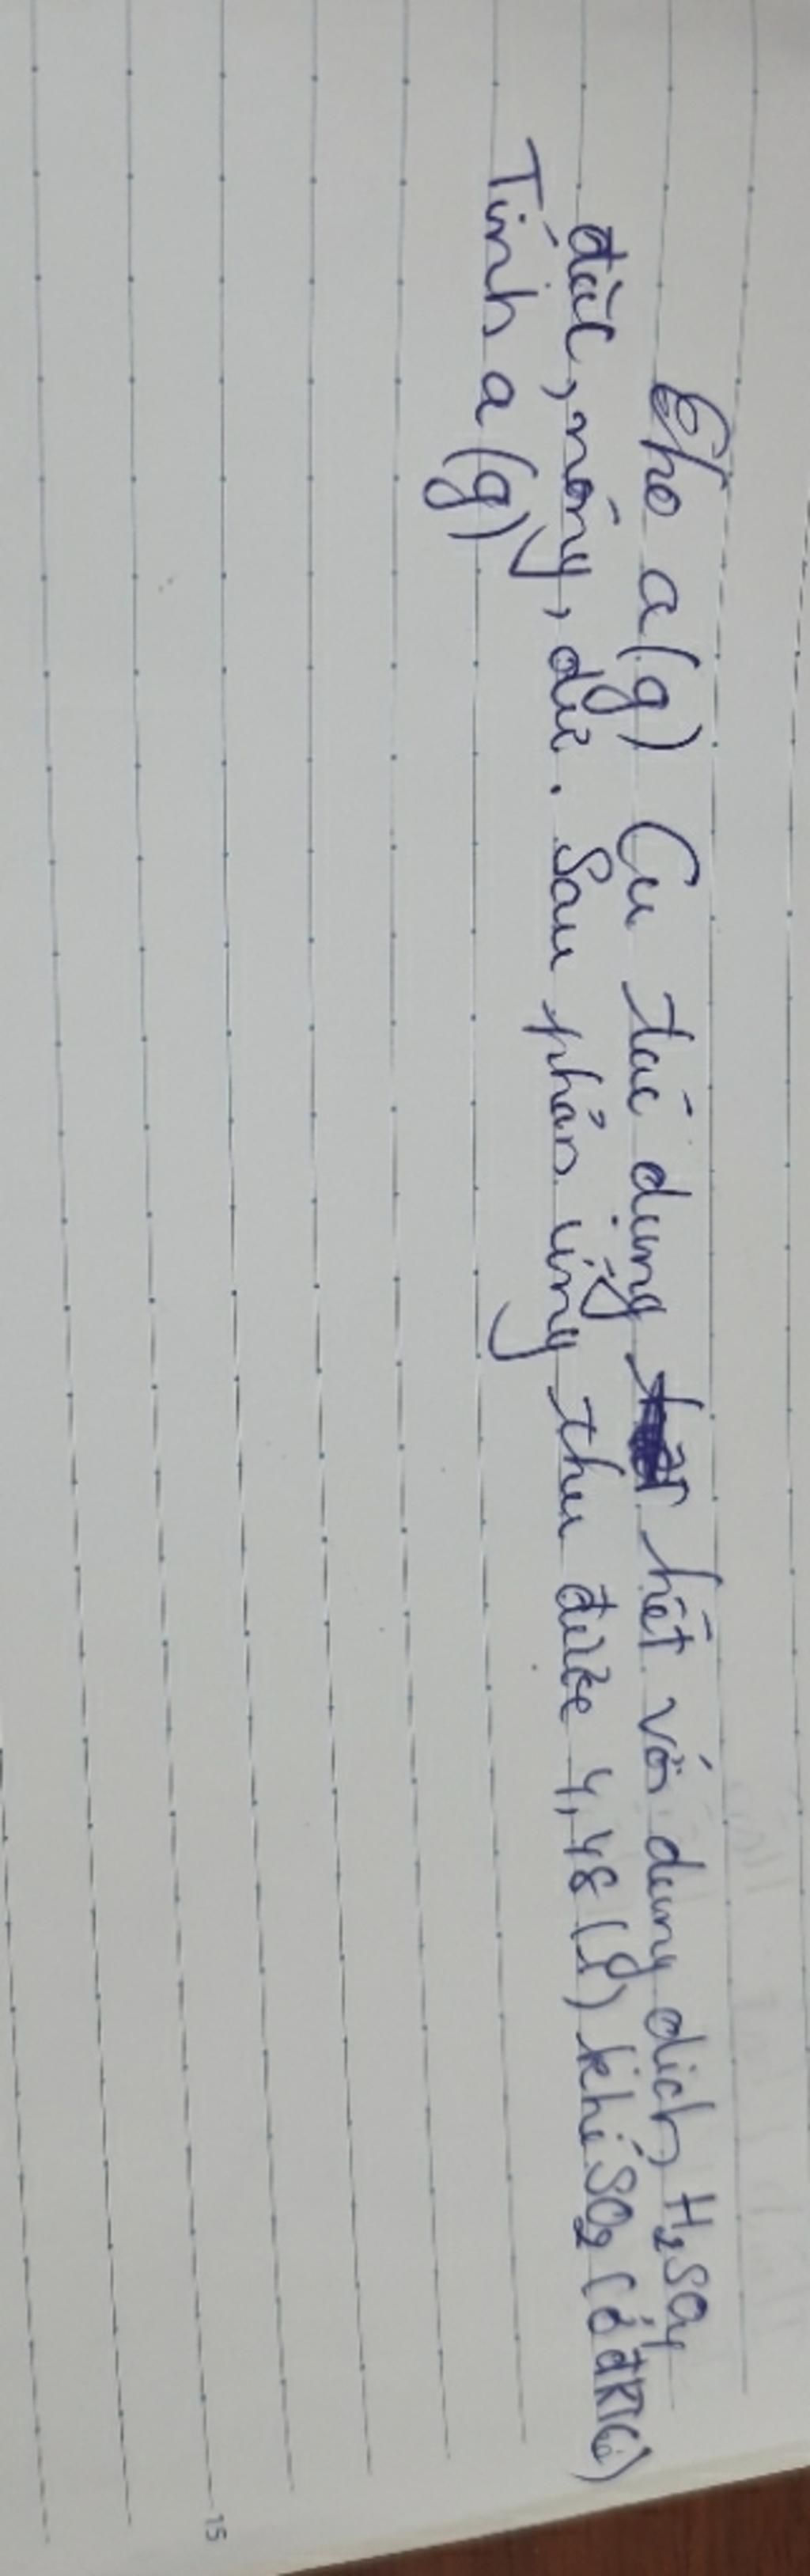 Cho a(g) Cu tác dụng hết với dung dịch H₂SO₄
đặc, nóng, dư. Sau phản ứng thu được 4,48 (l) khí SO₂ (ở đktc)
Tính a (g)
15